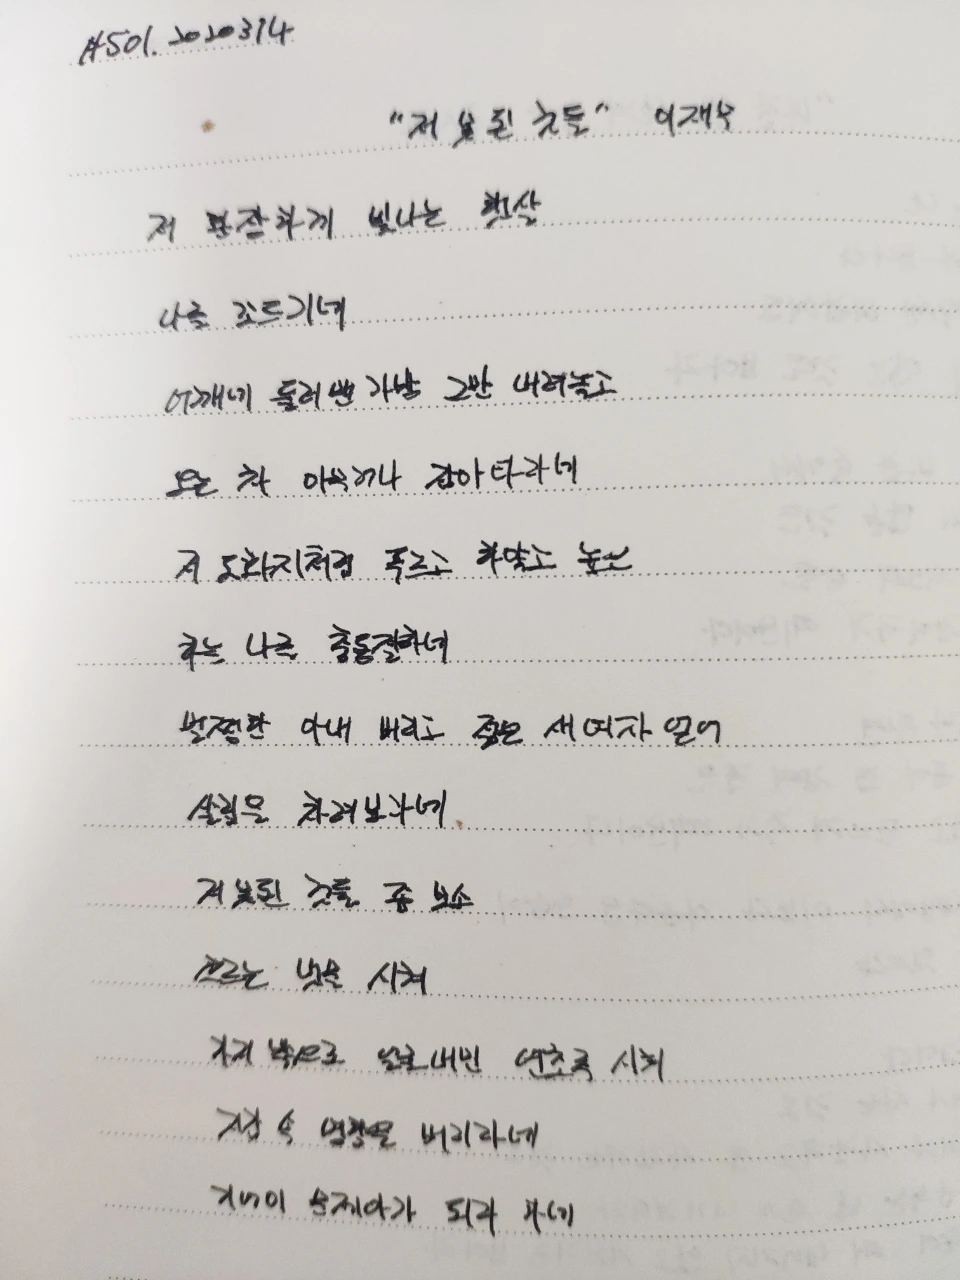 #501. 20200314
"저 못된 것들" 이재무
저 환장하게 빛나는 햇살
나를 꼬드기네
어깨에 둘러맨 가방 그만 내려놓고
오는 차 아무거나 잡아타라네
저 도화지처럼 푸르고 하얗고 높은
하늘 나를 충동질하네
멀쩡한 아내 버리고 젊은 새 여자 얻어
살림을 차려보라네
저 못된 것들 좀 보소
흐르는 냇물 시켜
가지 밖으로 얼굴 내민 연초록 시켜
지갑 속 명함을 버리라네
기어이 문제아가 되라 하네